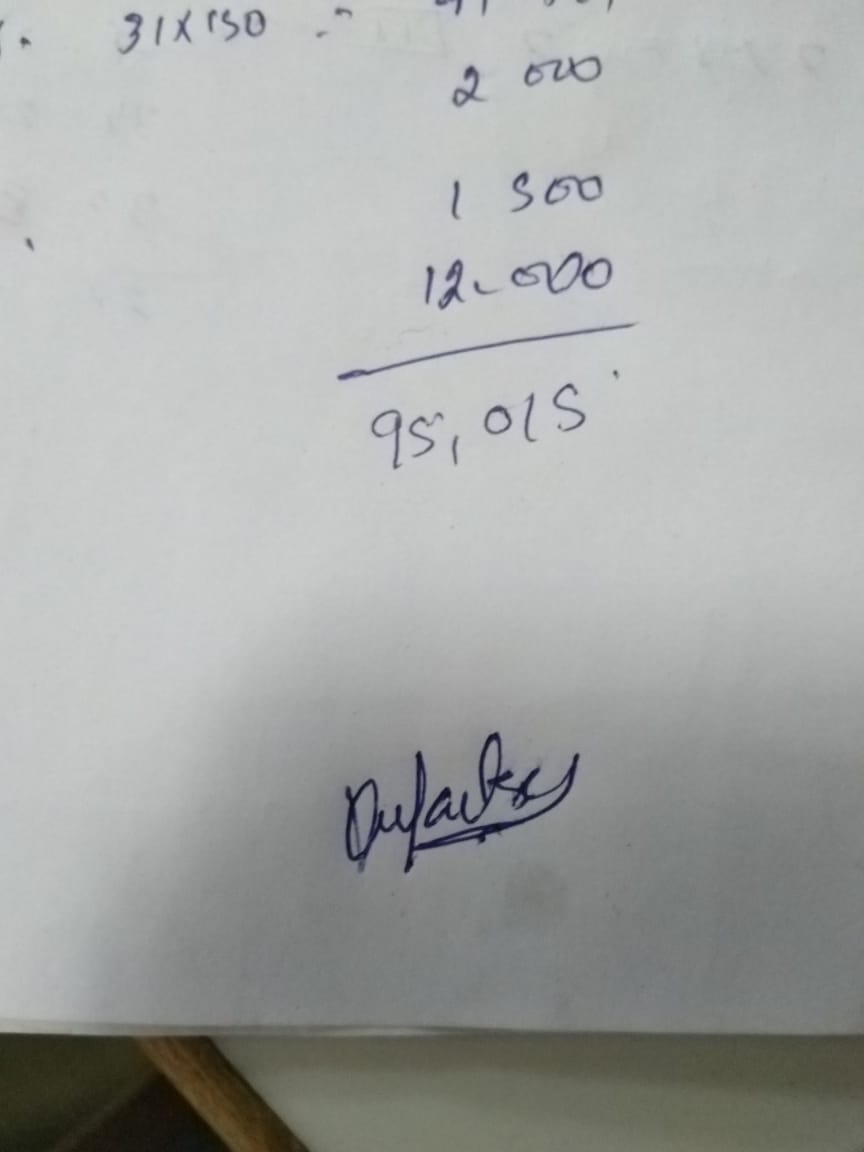 31X150
2 000
1 500
12.000
95,015